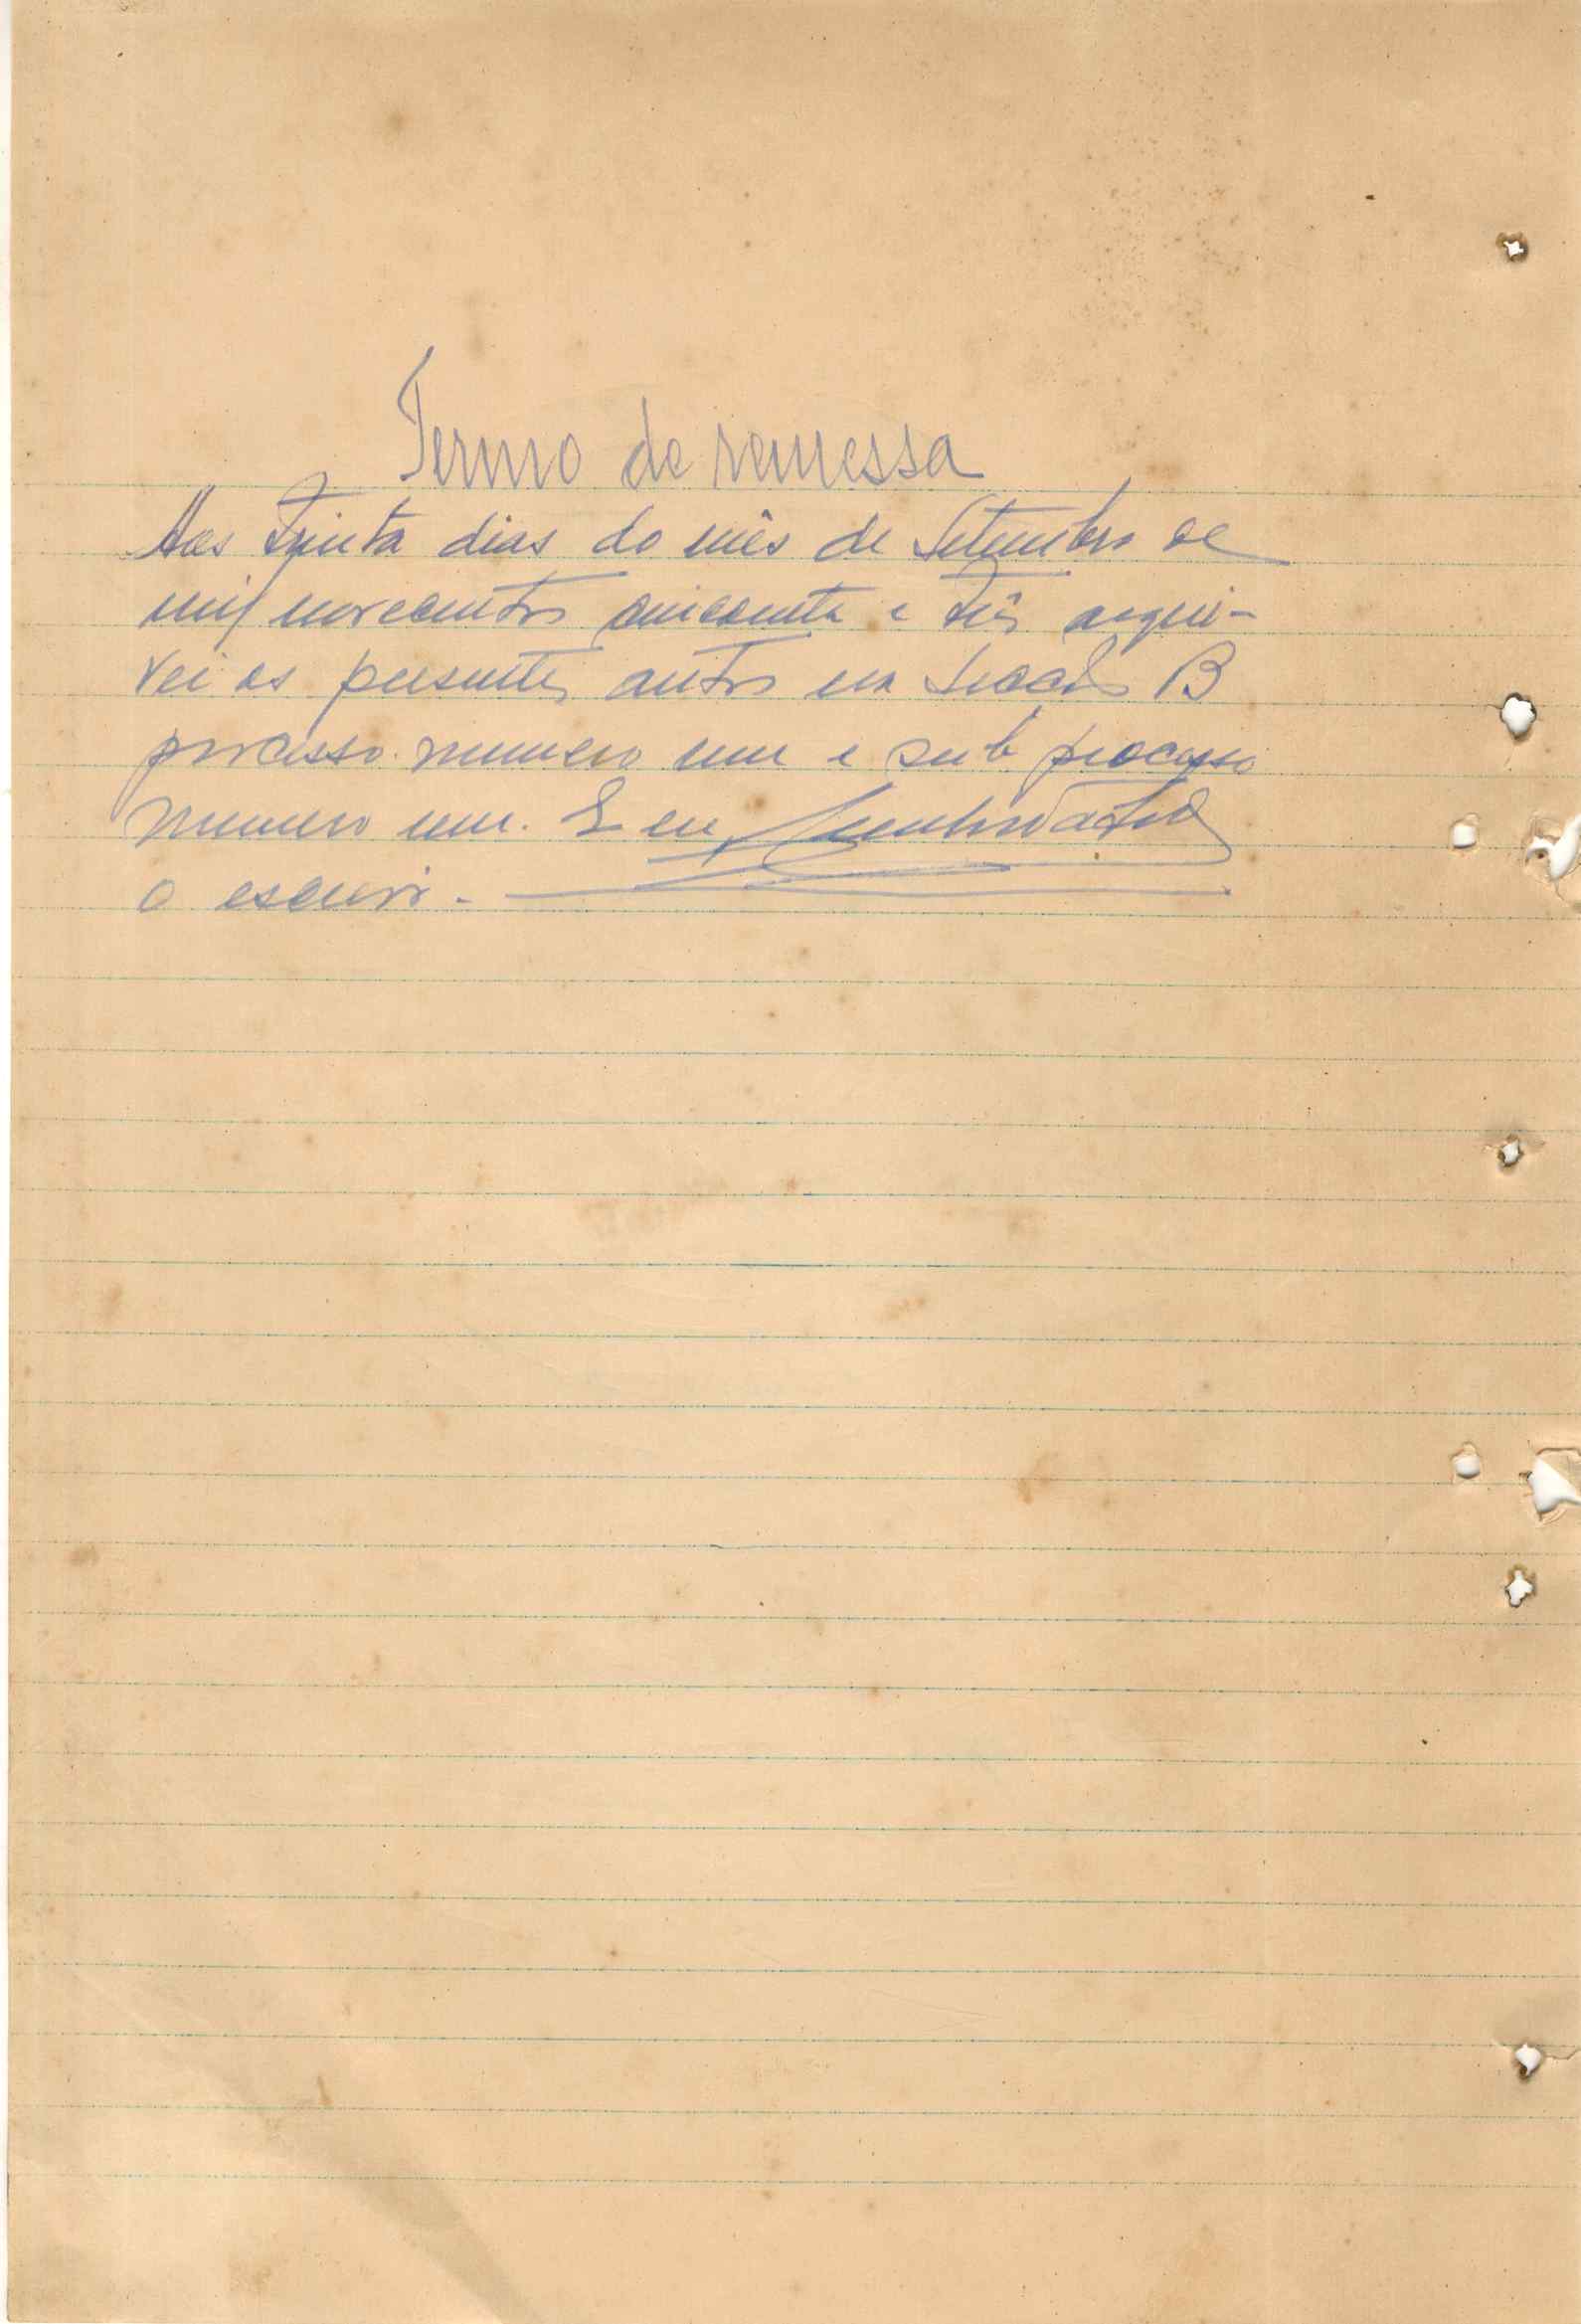 Termo de remessa
Aos trinta dias do mês de Setembro de
mil novecentos cincoenta e três arqui-
vei os presentes autos na Secção B
processo numero um e sub processo
numero um. E eu,
o escrevi.